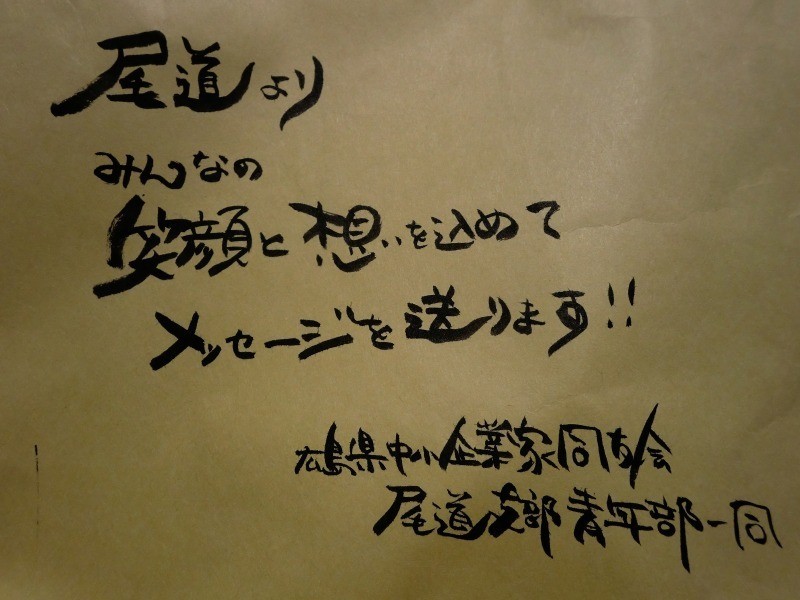 尾道より
みんなの
笑顔と想いを込めて
メッセージを送ります!!
広島県中小企業家同友会
尾道支部青年部一同